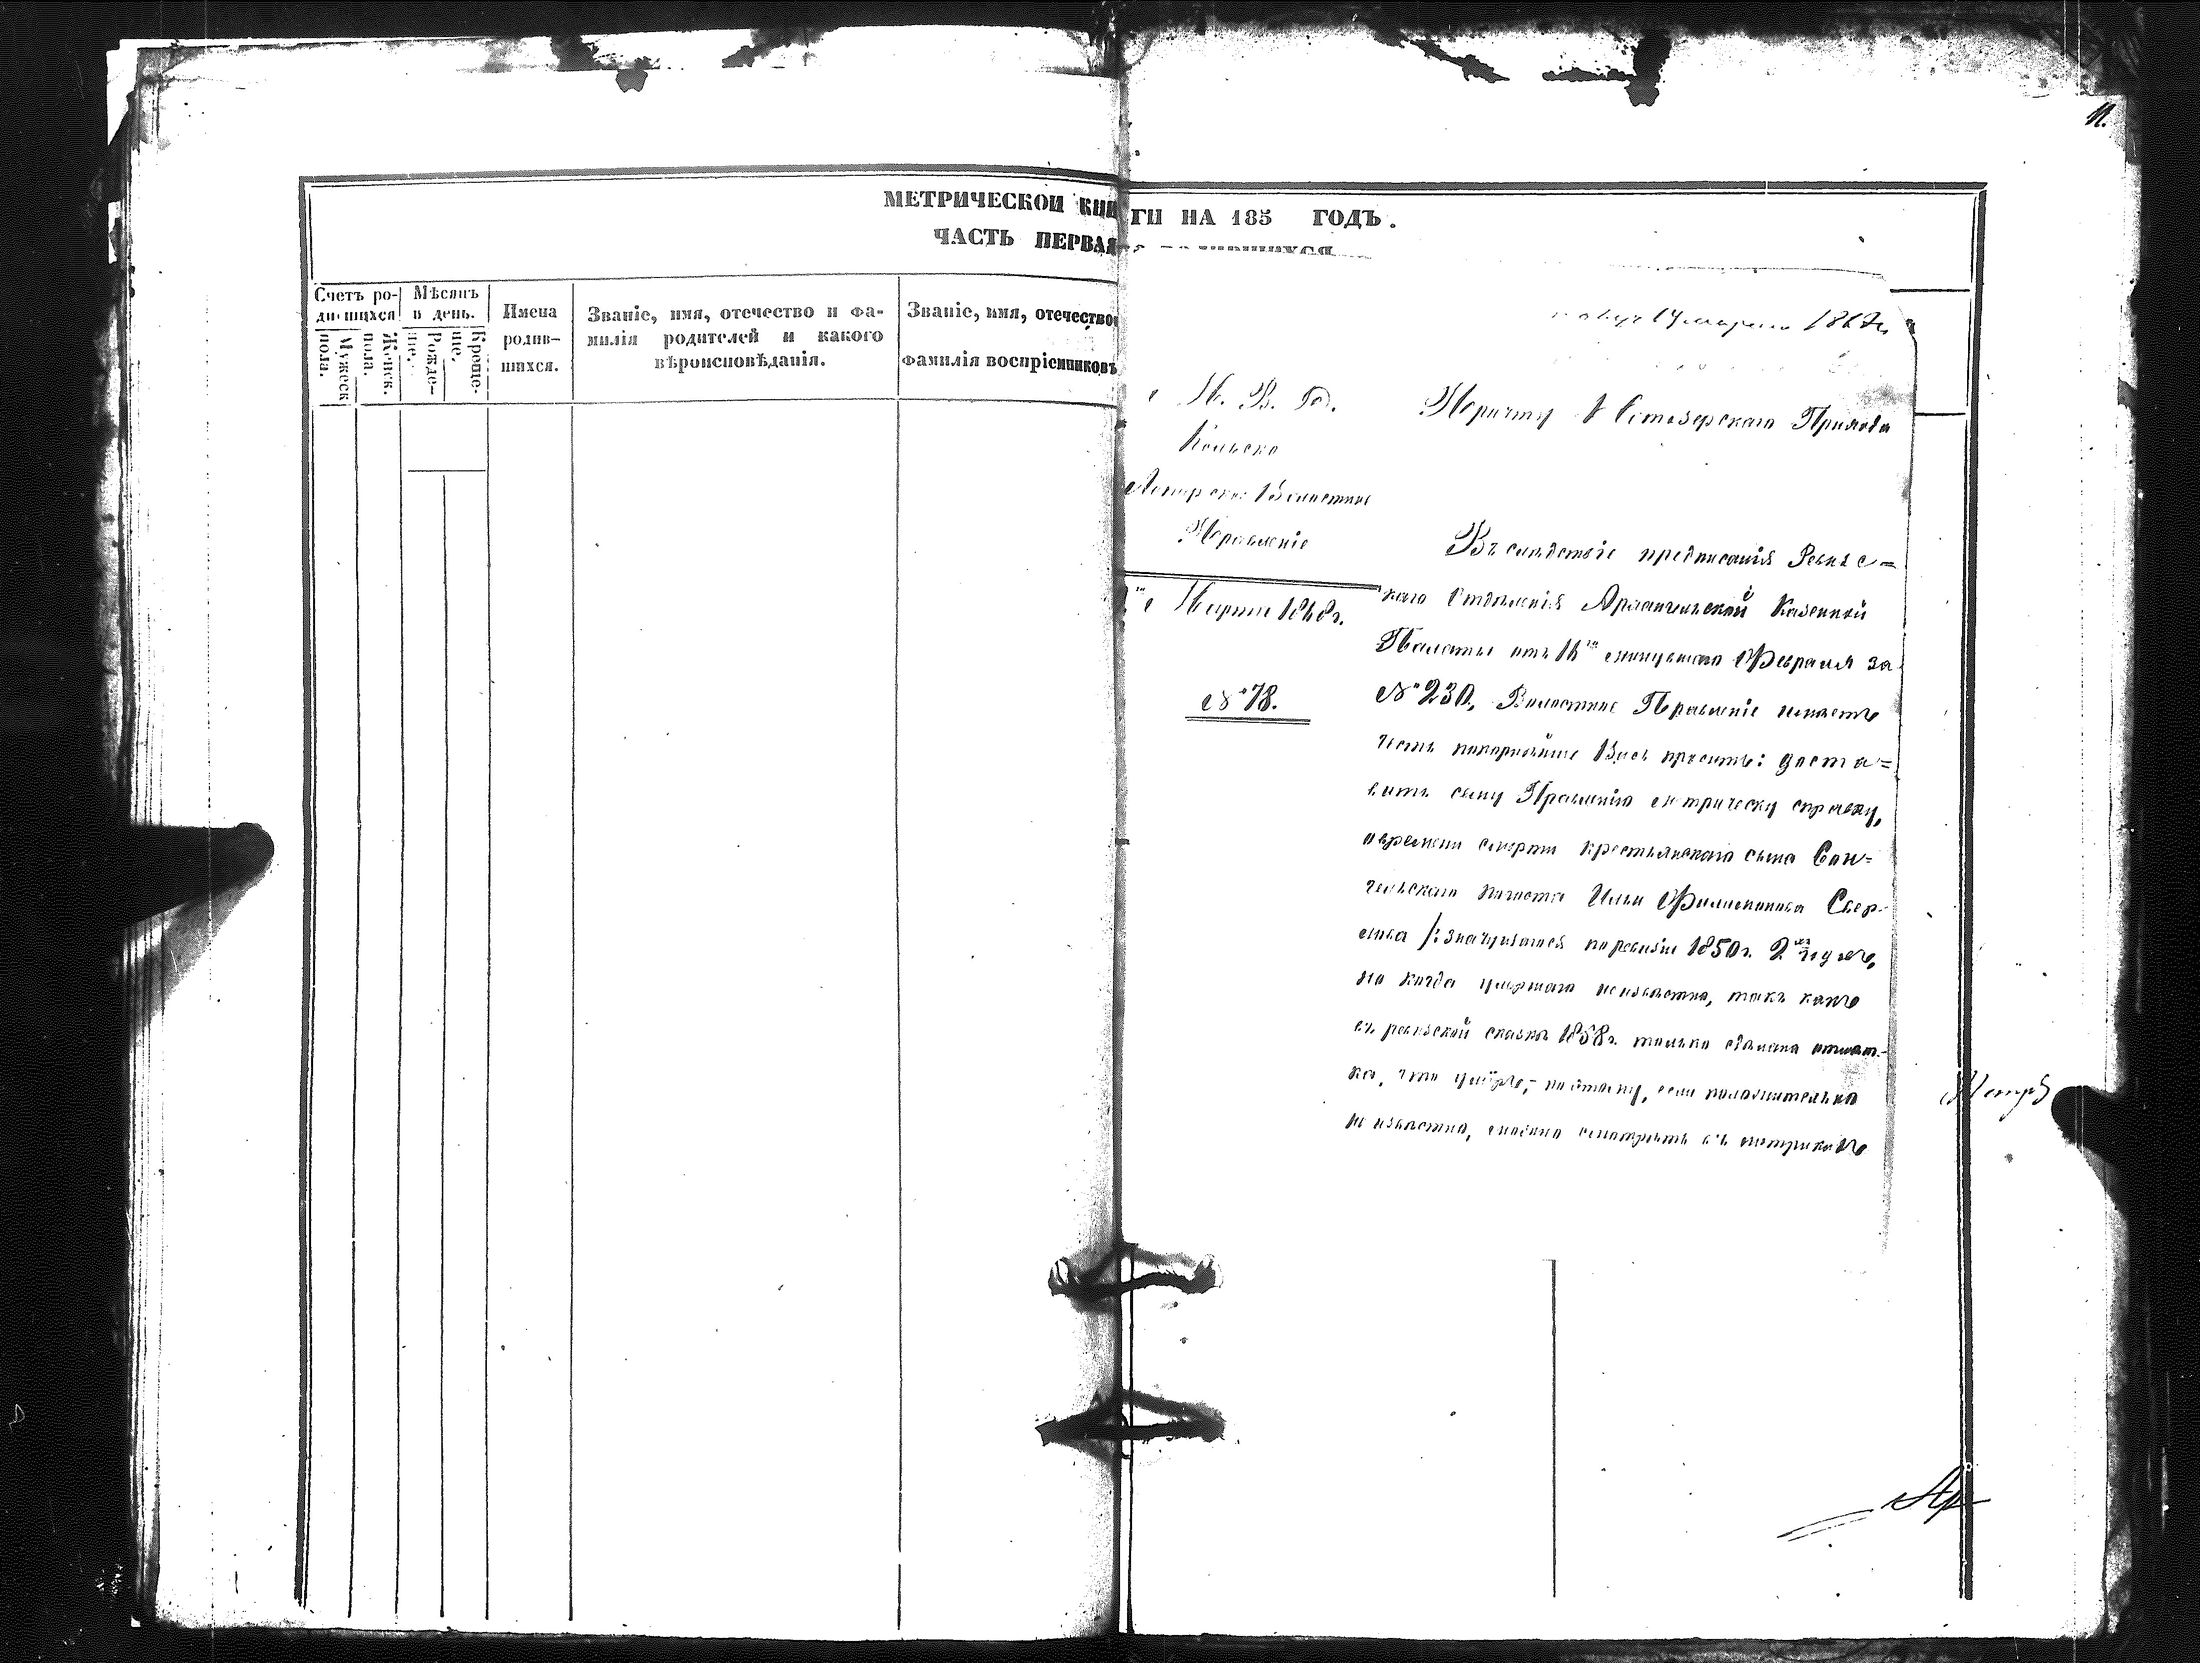 11.
МЕТРИЧЕСКОЙ КНИГИ НА 185 ГОДЪ.
ЧАСТЬ ПЕРВАЯ
Счетъ родившихся
Мужеск. пола.
Женск. пола.
Мѣсяцъ и день.
Рожденіе.
Крещеніе.
Имена родившихся.
Званіе, имя, отечество и фамилія родителей и какого вѣроисповѣданія.
Званіе, имя, отечество
фамилія воспріемниковъ
марта 1868
М. В.
Кольско
Волостное
Правленіе
Марта 1868 г.
№ 78.
Причту Прихода
Въ слѣдствіе предписанія Ревис=
каго Отдѣленія Архангельской Казенной
Палаты отъ 16 минувшаго Февраля за
№ 230, Волостное Правленіе имѣетъ
честь покорнѣйше Васъ просить: доста=
вить сему Правленію метрическу справку,
о времени смерти крестьянскаго сына Сон=
гельскаго погоста Ильи Филипова Свер
значущагося по ревизіи 1850 г. 2
но когда умершаго неизвѣстно, такъ какъ
въ ревизской сказкѣ 1858 г. только сдѣлана отмѣт-
ка, что умеръ, поэтому, если положительно
не извѣстно, можно смотрѣть въ метрикахъ